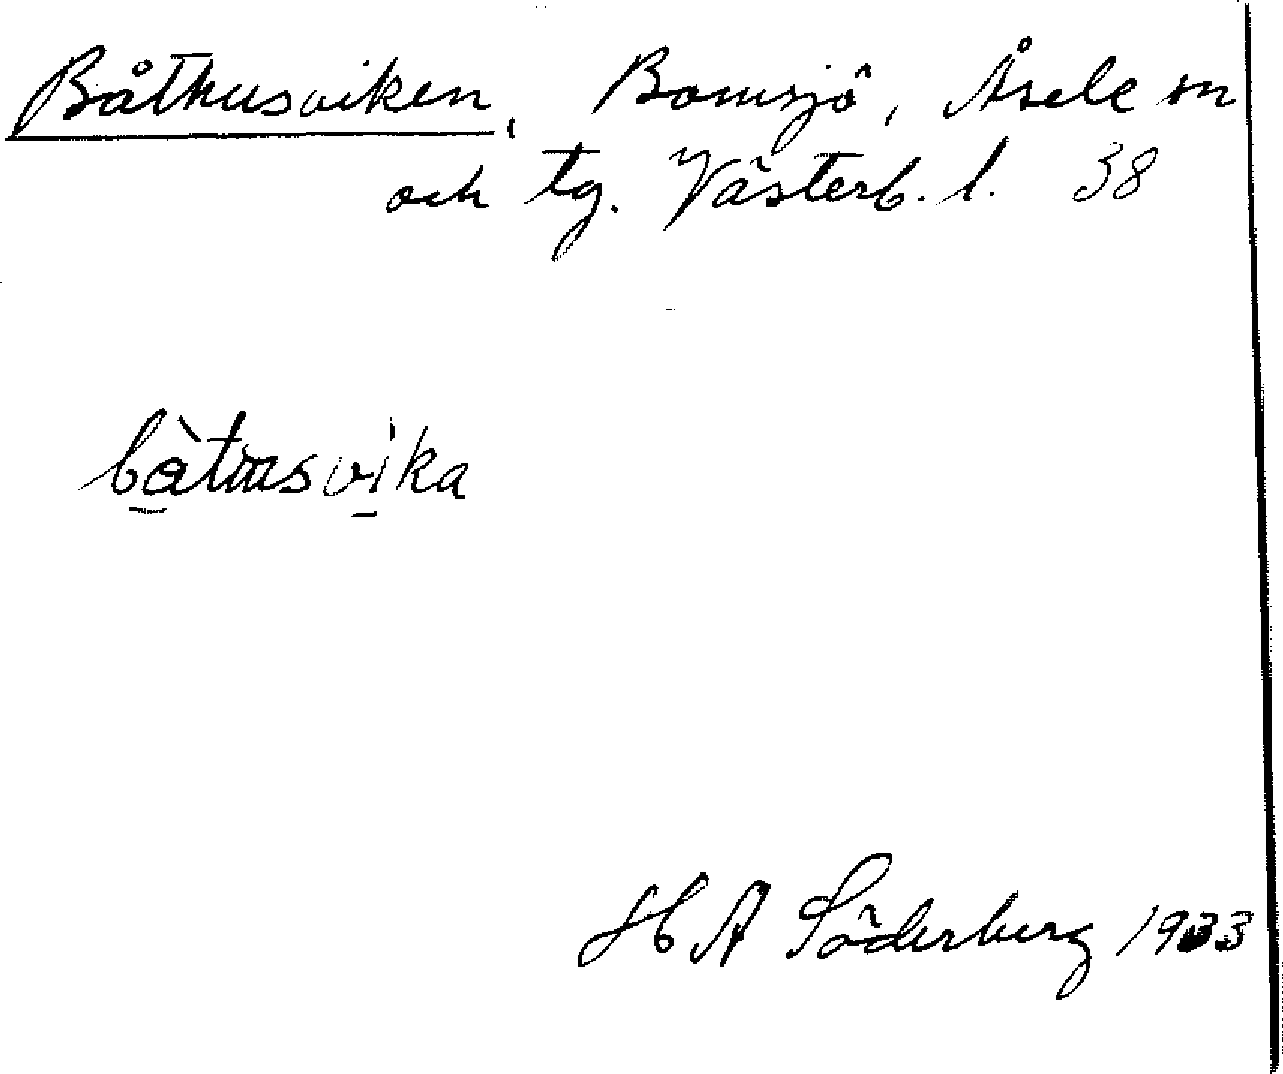 Båthusviken, Bomsjö, Åsele sn
och tg. Västerb. l. 38
bàtusvika
H A Söderberg 1933